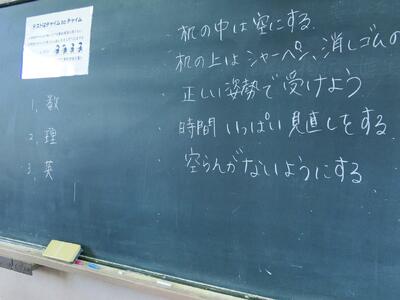 テストはチャイム to チャイム
1、数
2、理
3、英
・机の中は空にする.
・机の上はシャーペン、消しゴムの
・正しい姿勢で受けよう
・時間いっぱい見直しをする
・空らんがないようにする